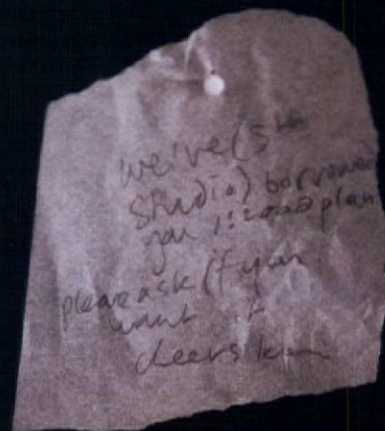 we've (5th
studio) borrowed
you 1:2000 plan
please ask if you
want it
cheers